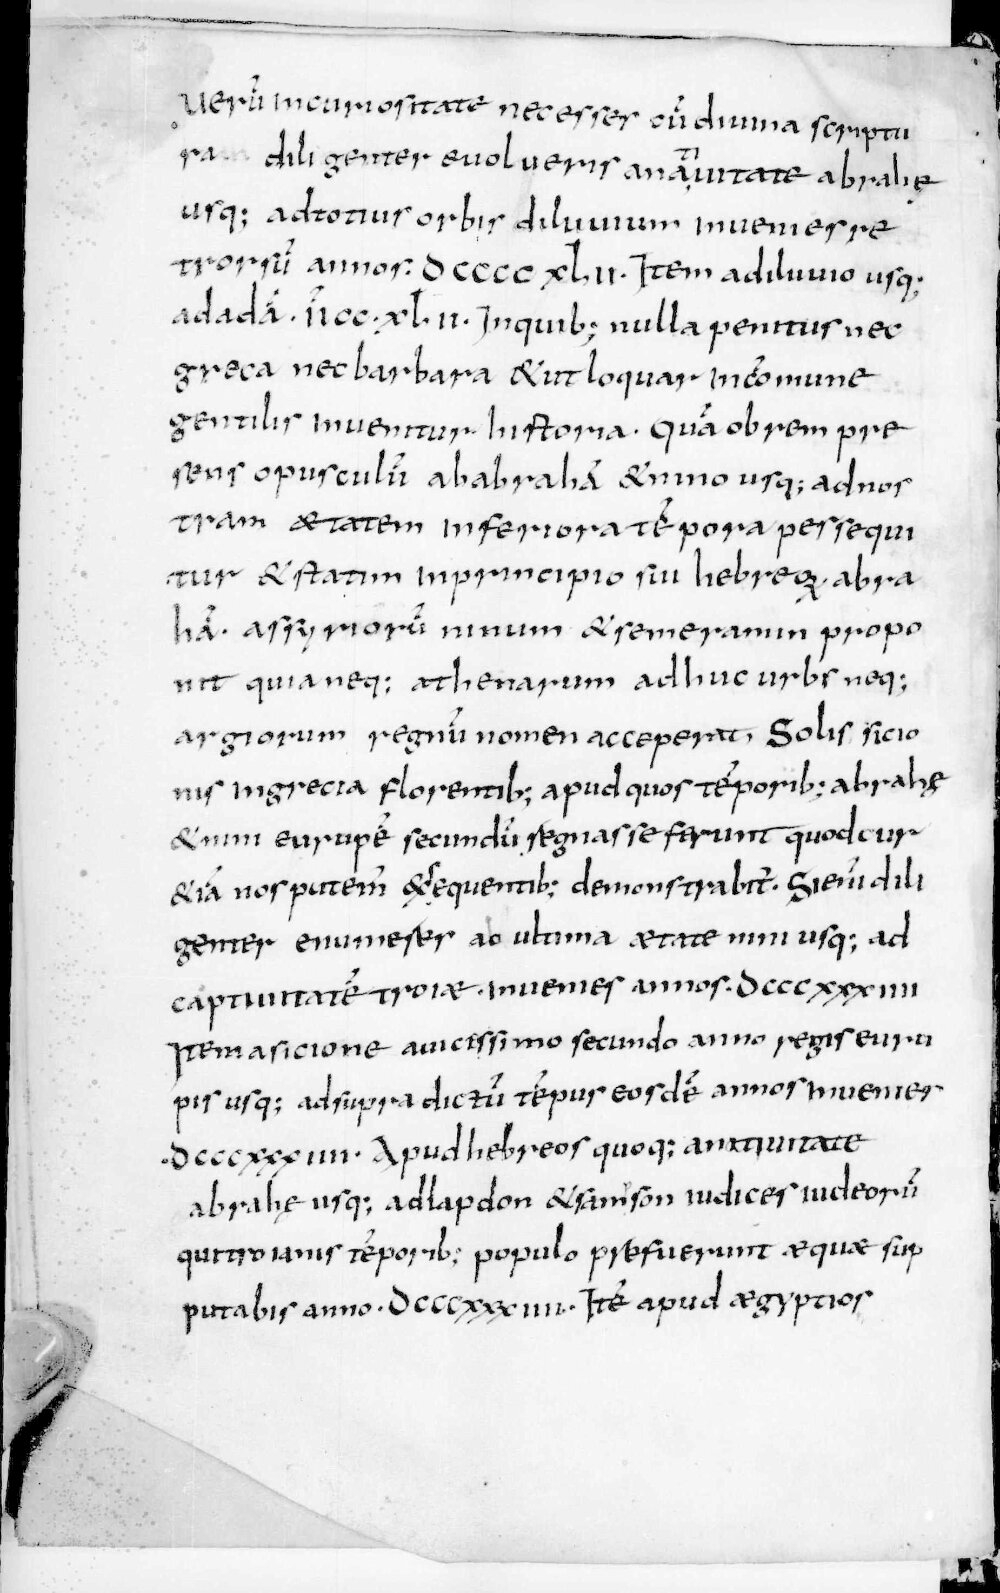 Uerū incuriositate necesser cū diuina scriptu
ram diligenter euolueris ana ti uitate abrahę
usq; adtotius orbis diluuium inuenies re
trorsū annos. DCCCC XL II. Item adiluuio usq;
adadā. II CC. XL. II. Inquib; nulla penitus nec
greca nec barbara & ut loquar incōmune
gentilis inuenitur historia. Quā obrem pre
sens opusculū ababrahā & nino usq; adnos
tram ætatem inferiora tēpora persequi
tur & statim inprincipio sui hebreoꝝ abra
hā. assyriorū ninum & semeramin propo
nit quia neq; athenarum adhuc urbs neq;
argiorum regnū nomen acceperat, Solis sicio
niis ingrecia florentib; apud quos tēporib; abrahę
& nini eurupē secundū regnasse ferunt quod cur
& iā nos putem̄ & sequentib; demonstrabit̄. Si enī dili
genter enumeser ab ultima ætate nini usq; ad
captiuitatē troiæ. inuenies annos. DCCCXXXIIII
Item asicione auicissimo secundo anno regis euru
pis usq; adsupra dictū tēpus eosdē annos inuenier
.DCCCXXXIIII. Apud hebreos quoq; anatiuitate
abrahę usq; adlapdon & samson iudices iudeorū
qui troianis tēporib; populo præfuerunt æquæ sup
putabis anno. DCCCXXXIIII. Itē apud ægyptios